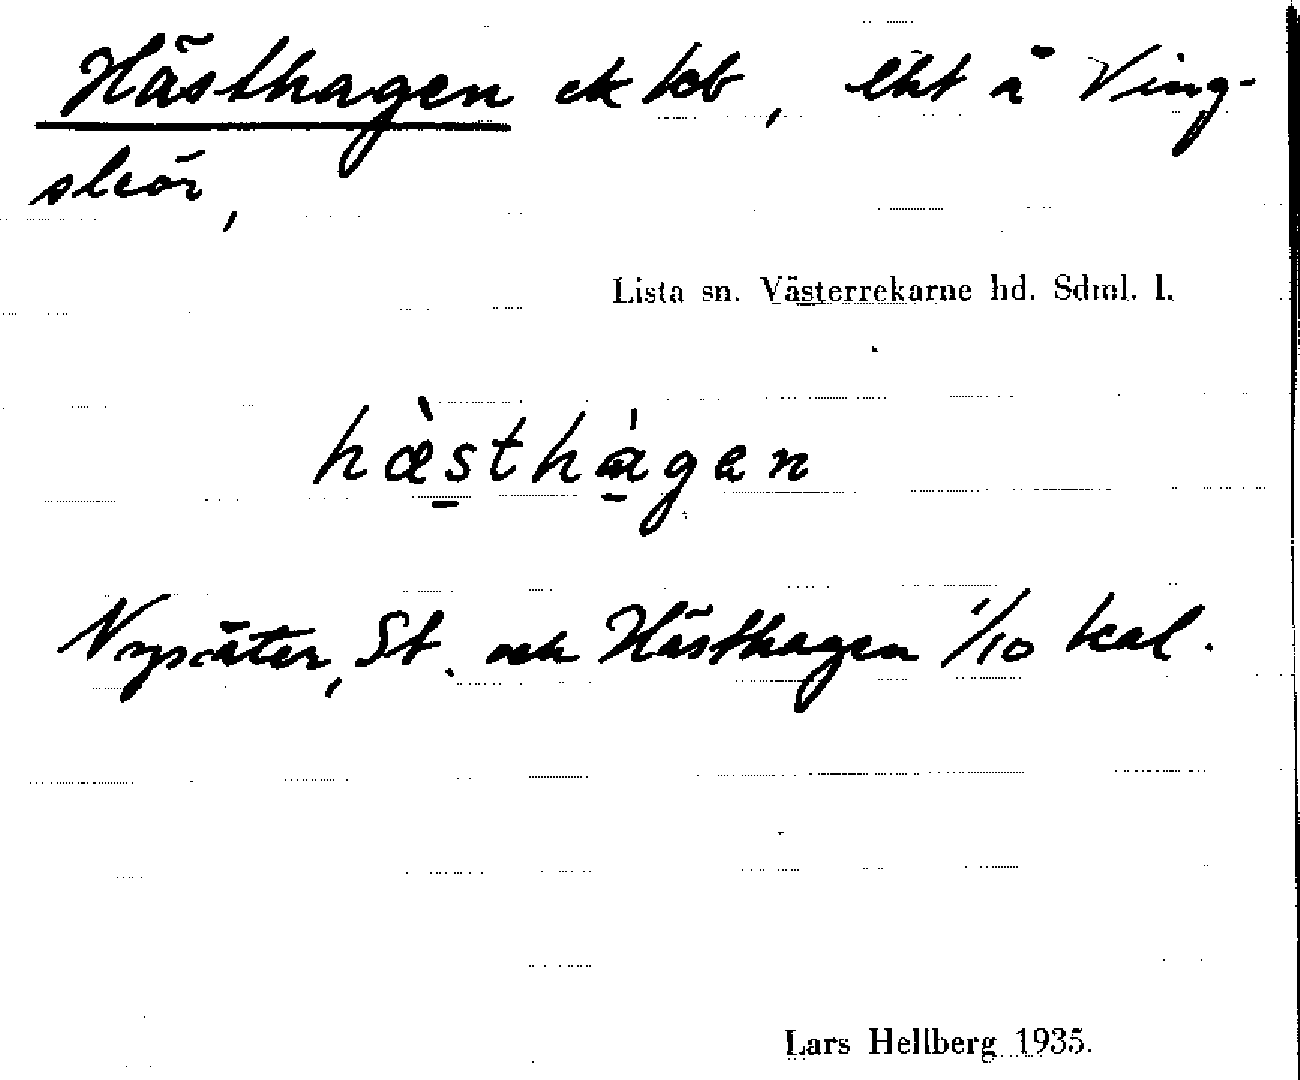 Hästhagen ek kb, lht å Ving-
sleör,
Lista sn. Västerrekarne hd. Sdml. l.
hæ̀sthàgen
Nysäter, St. och Hästhagen 1/10 kal.
Lars Hellberg 1935.